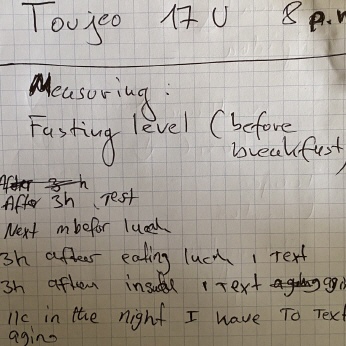 Toujeo 17 U 8 p.m
Measuring :
Fasting level (before
breakfast
After 3h
After 3h Test
Next m befor luch
3h after eating luch , Text
3h after , Text
in the night I have To Text
aging